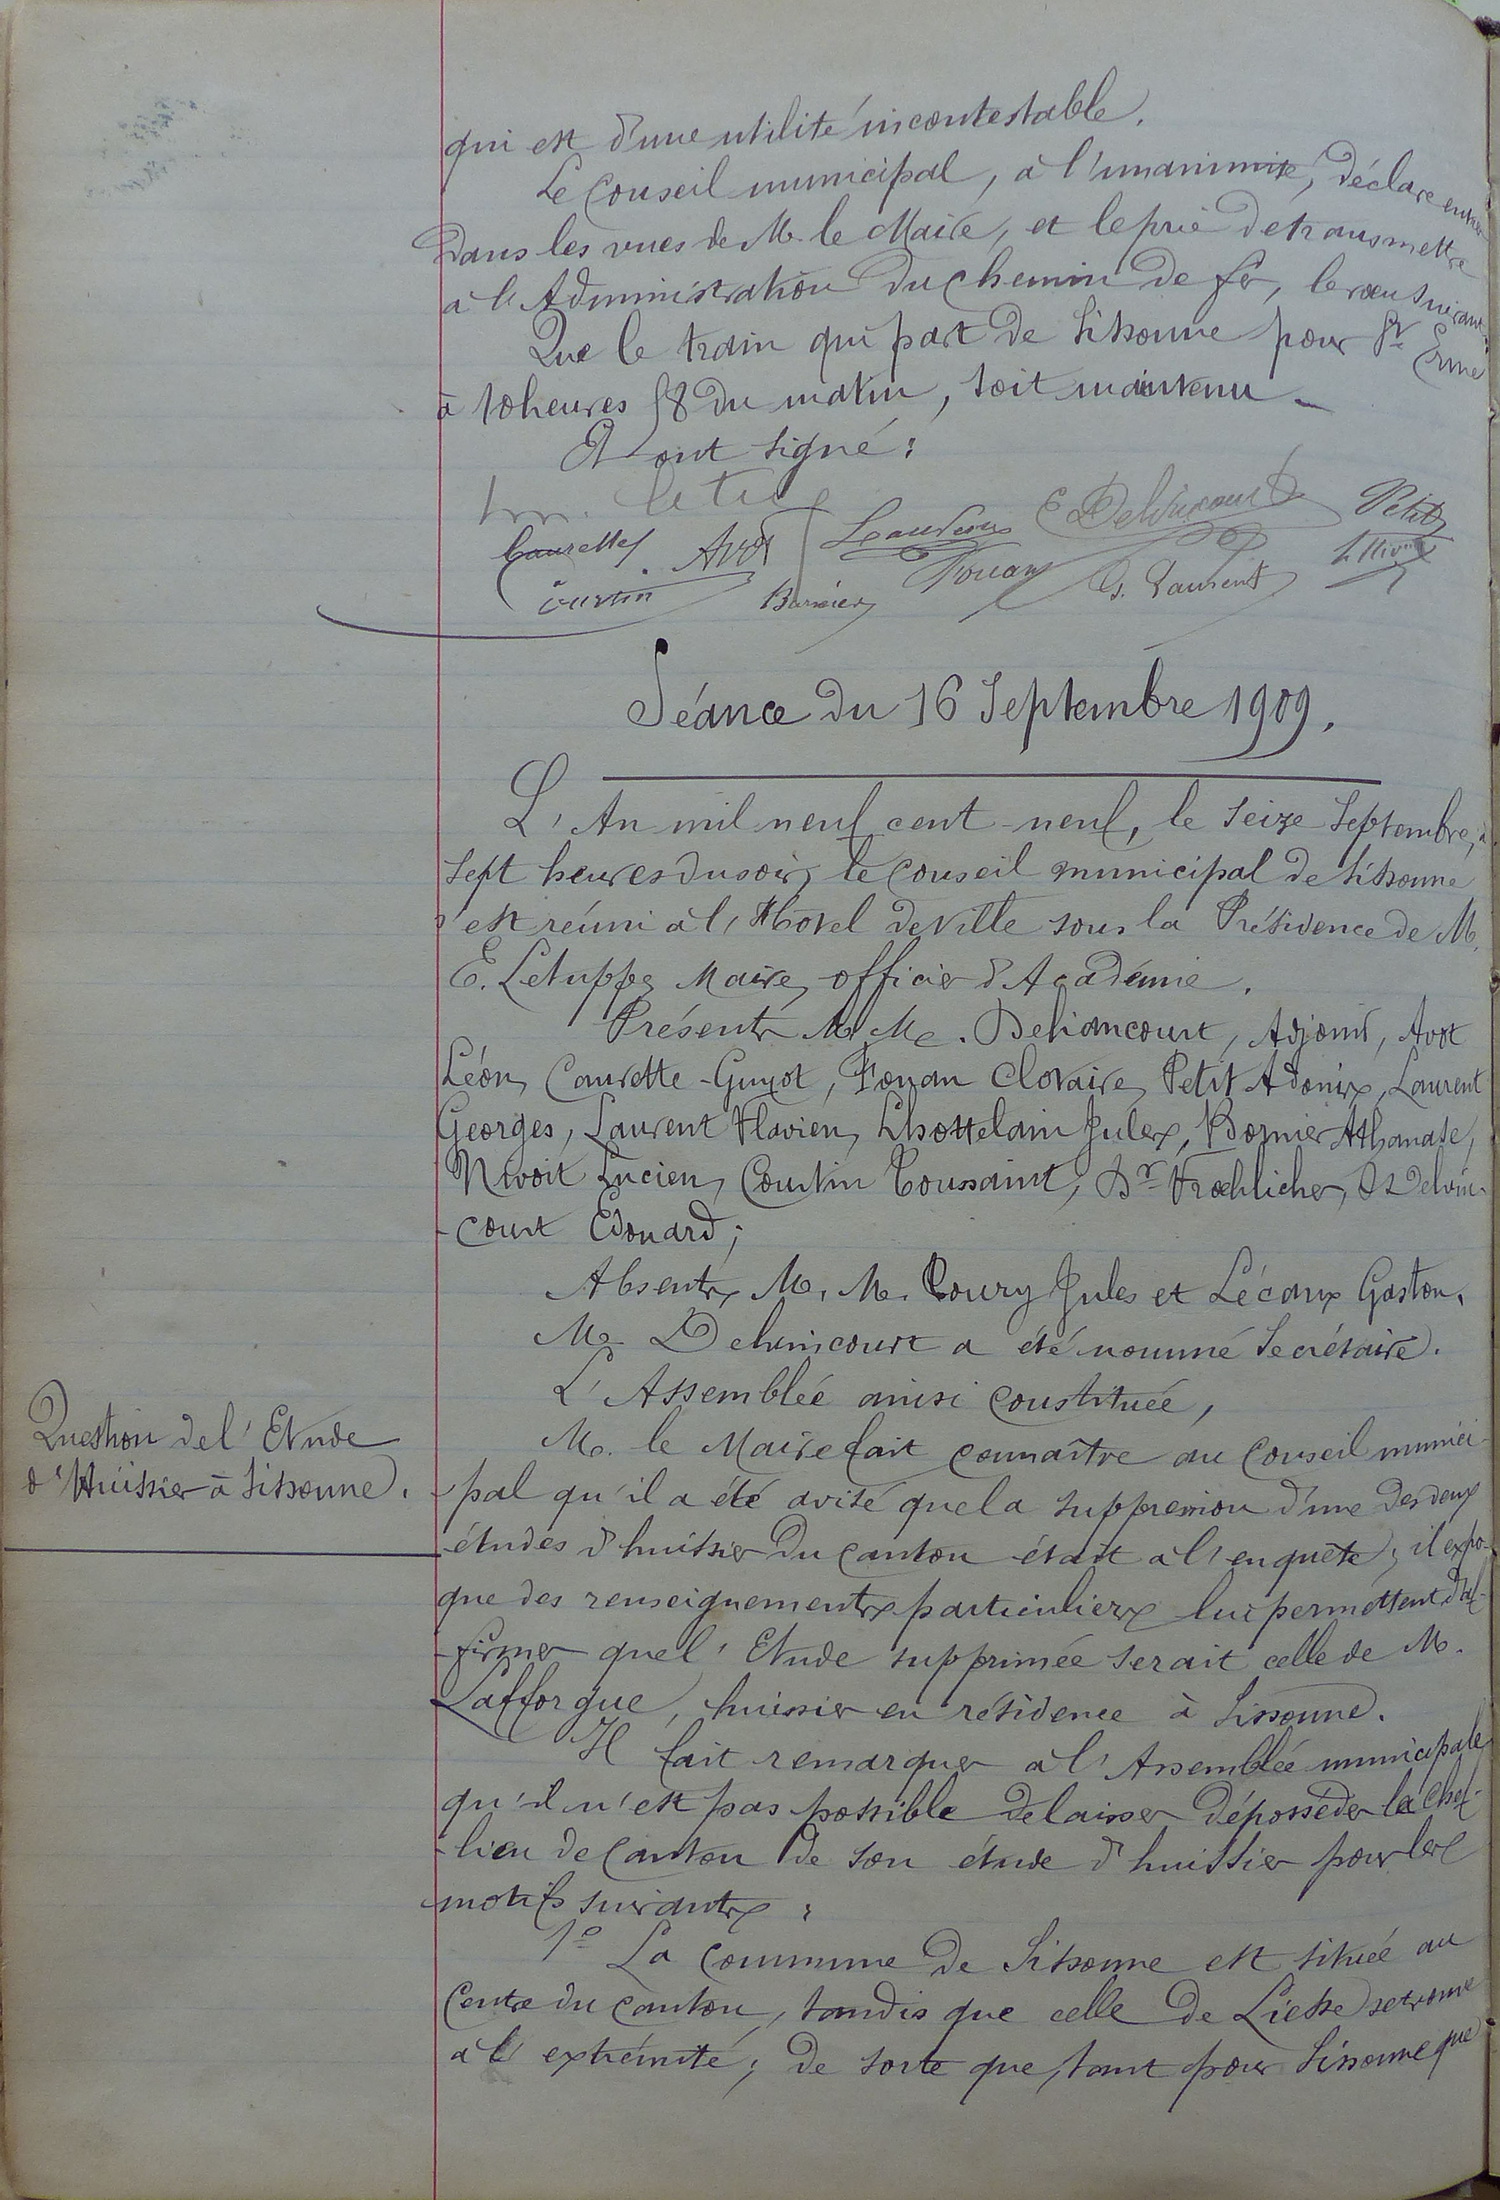 qui est d'une utilité incontestable.
Le Conseil municipal, à l'unanimité, déclare entrer
dans les vues de M. le Maire, et le prie de transmettre
à l'Administration du chemin de fer, le vœu suivant:
Que le train qui part de Sissonne pour St Erme
à 10 heures 58 du matin, soit maintenu.
Et ont signé:
Petit
Caurette Avot E Delvincourt
Courtin Bornier Fouan G. Laurent
Séance du 16 Septembre 1909.
L'An mil neuf cent-neuf, le seize Septembre, à
sept heures du soir, le Conseil municipal de Sissonne
s'est réuni à l'Hôtel de Ville sous la Présidence de M.
E. Letuppe, Maire, officier d'Académie.
Présents M.M. Dehancourt, Adjoint, Avot
Léon, Caurette-Guyot, Fouan Clovaire, Petit Adonix, Laurent
Georges, Laurent Flavien, Lhottelain Jules, Bornier Athanase,
Nivoit Lucien, Courtin Toussaint, Dr Froehlicher, & Delvin-
-court Edouard;
Absents, M.M. Coury Jules et Lécaux Gaston.
M. Delvincourt a été nommé Secrétaire.
L'Assemblée ainsi constituée,
Question de l'Etude
d'Huissier à Sissonne.
M. le Maire fait connaître au Conseil munici-
-pal qu'il a été avisé que la suppression d'une des deux
études d'huissier du canton était à l'enquête; il expo-
que des renseignements particuliers lui permettent d'af-
-firmer que l'Etude supprimée serait celle de M.
Lafforgue, huissier en résidence à Sissonne.
Il fait remarquer à l'Assemblée municipale
qu'il n'est pas possible de laisser déposséder le chef-
-lieu de Canton de son étude d'huissier pour les
motifs suivants:
1º La Commune de Sissonne est située au
centre du canton, tandis que celle de Liesse se trouve
à l'extrémité; de sorte que, tant pour Sissonne que